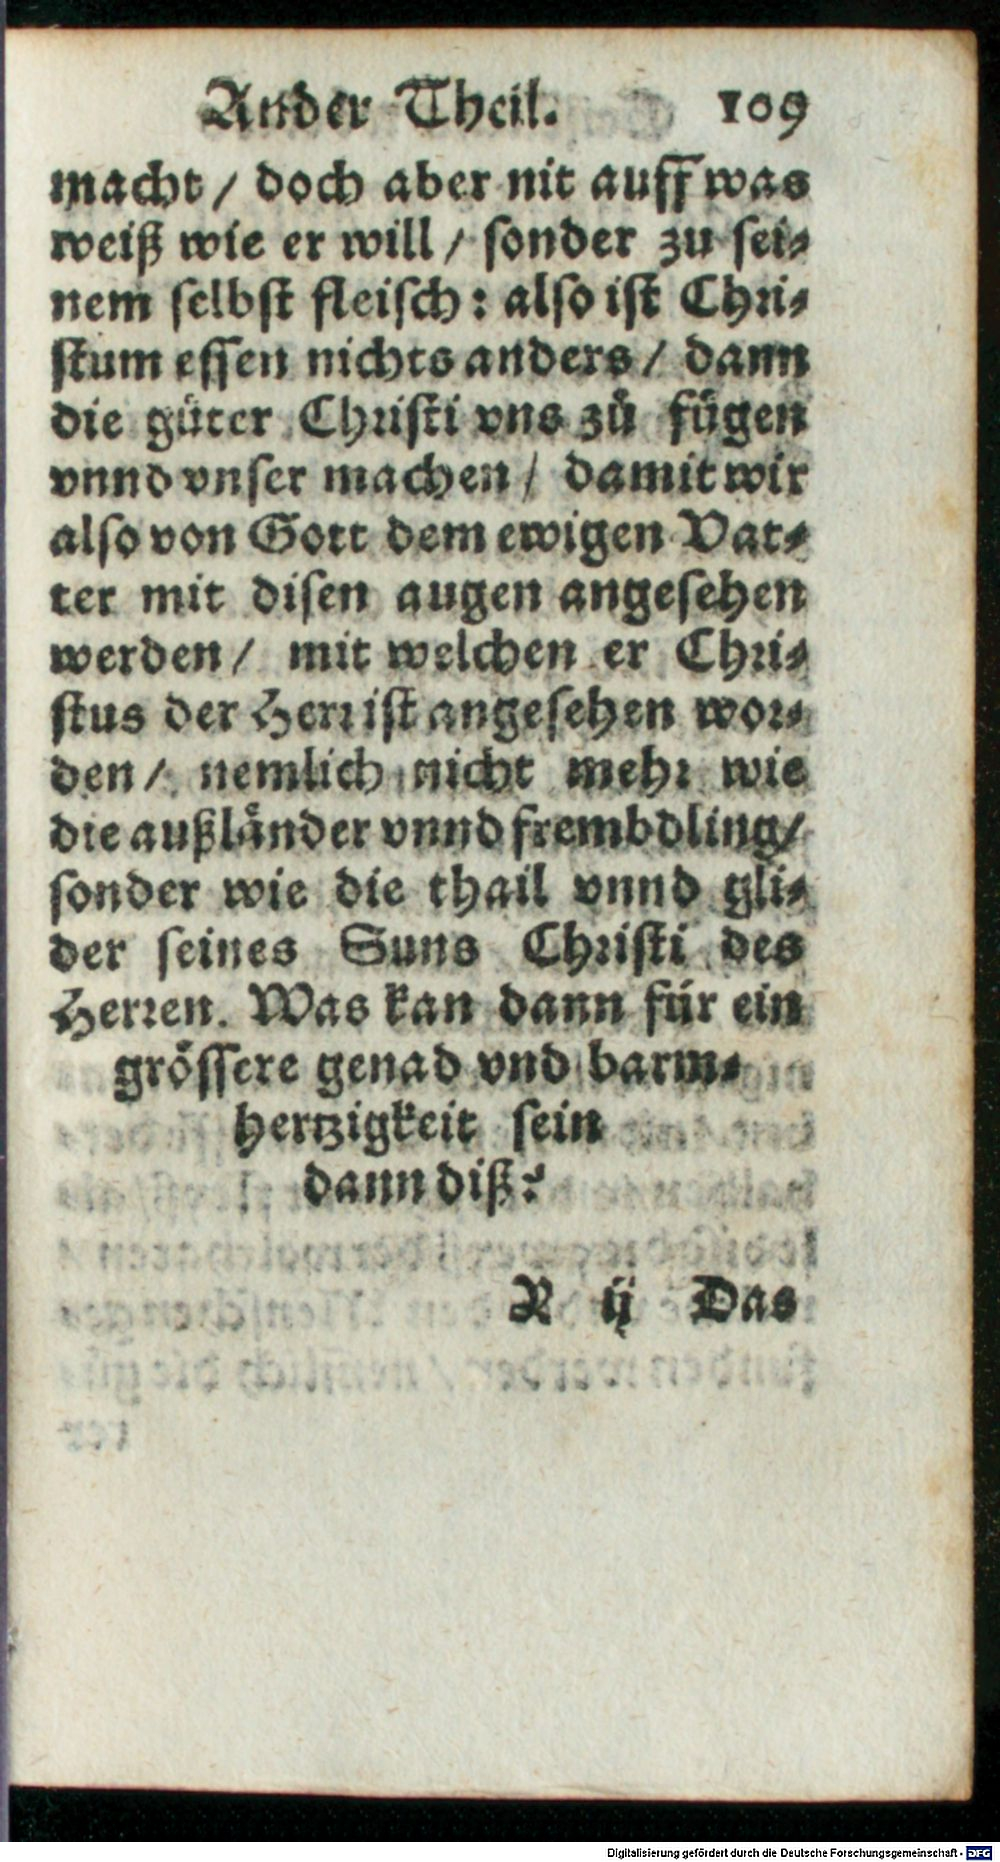 Ander Theil. 109
macht / doch aber nit auff was
weiß wie er will / sonder zu sei⸗
nem selbst fleisch: also ist Chri⸗
stum essen nichts anders / dann
die güter Christi vns zů fügen
vnnd vnser machen / damit wir
also von Gott dem ewigen Vat⸗
ter mit disen augen angesehen
werden / mit welchen er Chri⸗
stus der Herr ist angesehen wor⸗
den / nemlich nicht mehr wie
die außländer vnnd frembdling /
sonder wie die thail vnnd gli⸗
der seines Suns Christi des
Herren. Was kan dann für ein
grössere genad vnd barm⸗
hertzigkeit sein
dann diß?
R ij Das
Digitalisierung gefördert durch die Deutsche Forschungsgemeinschaft - DFG